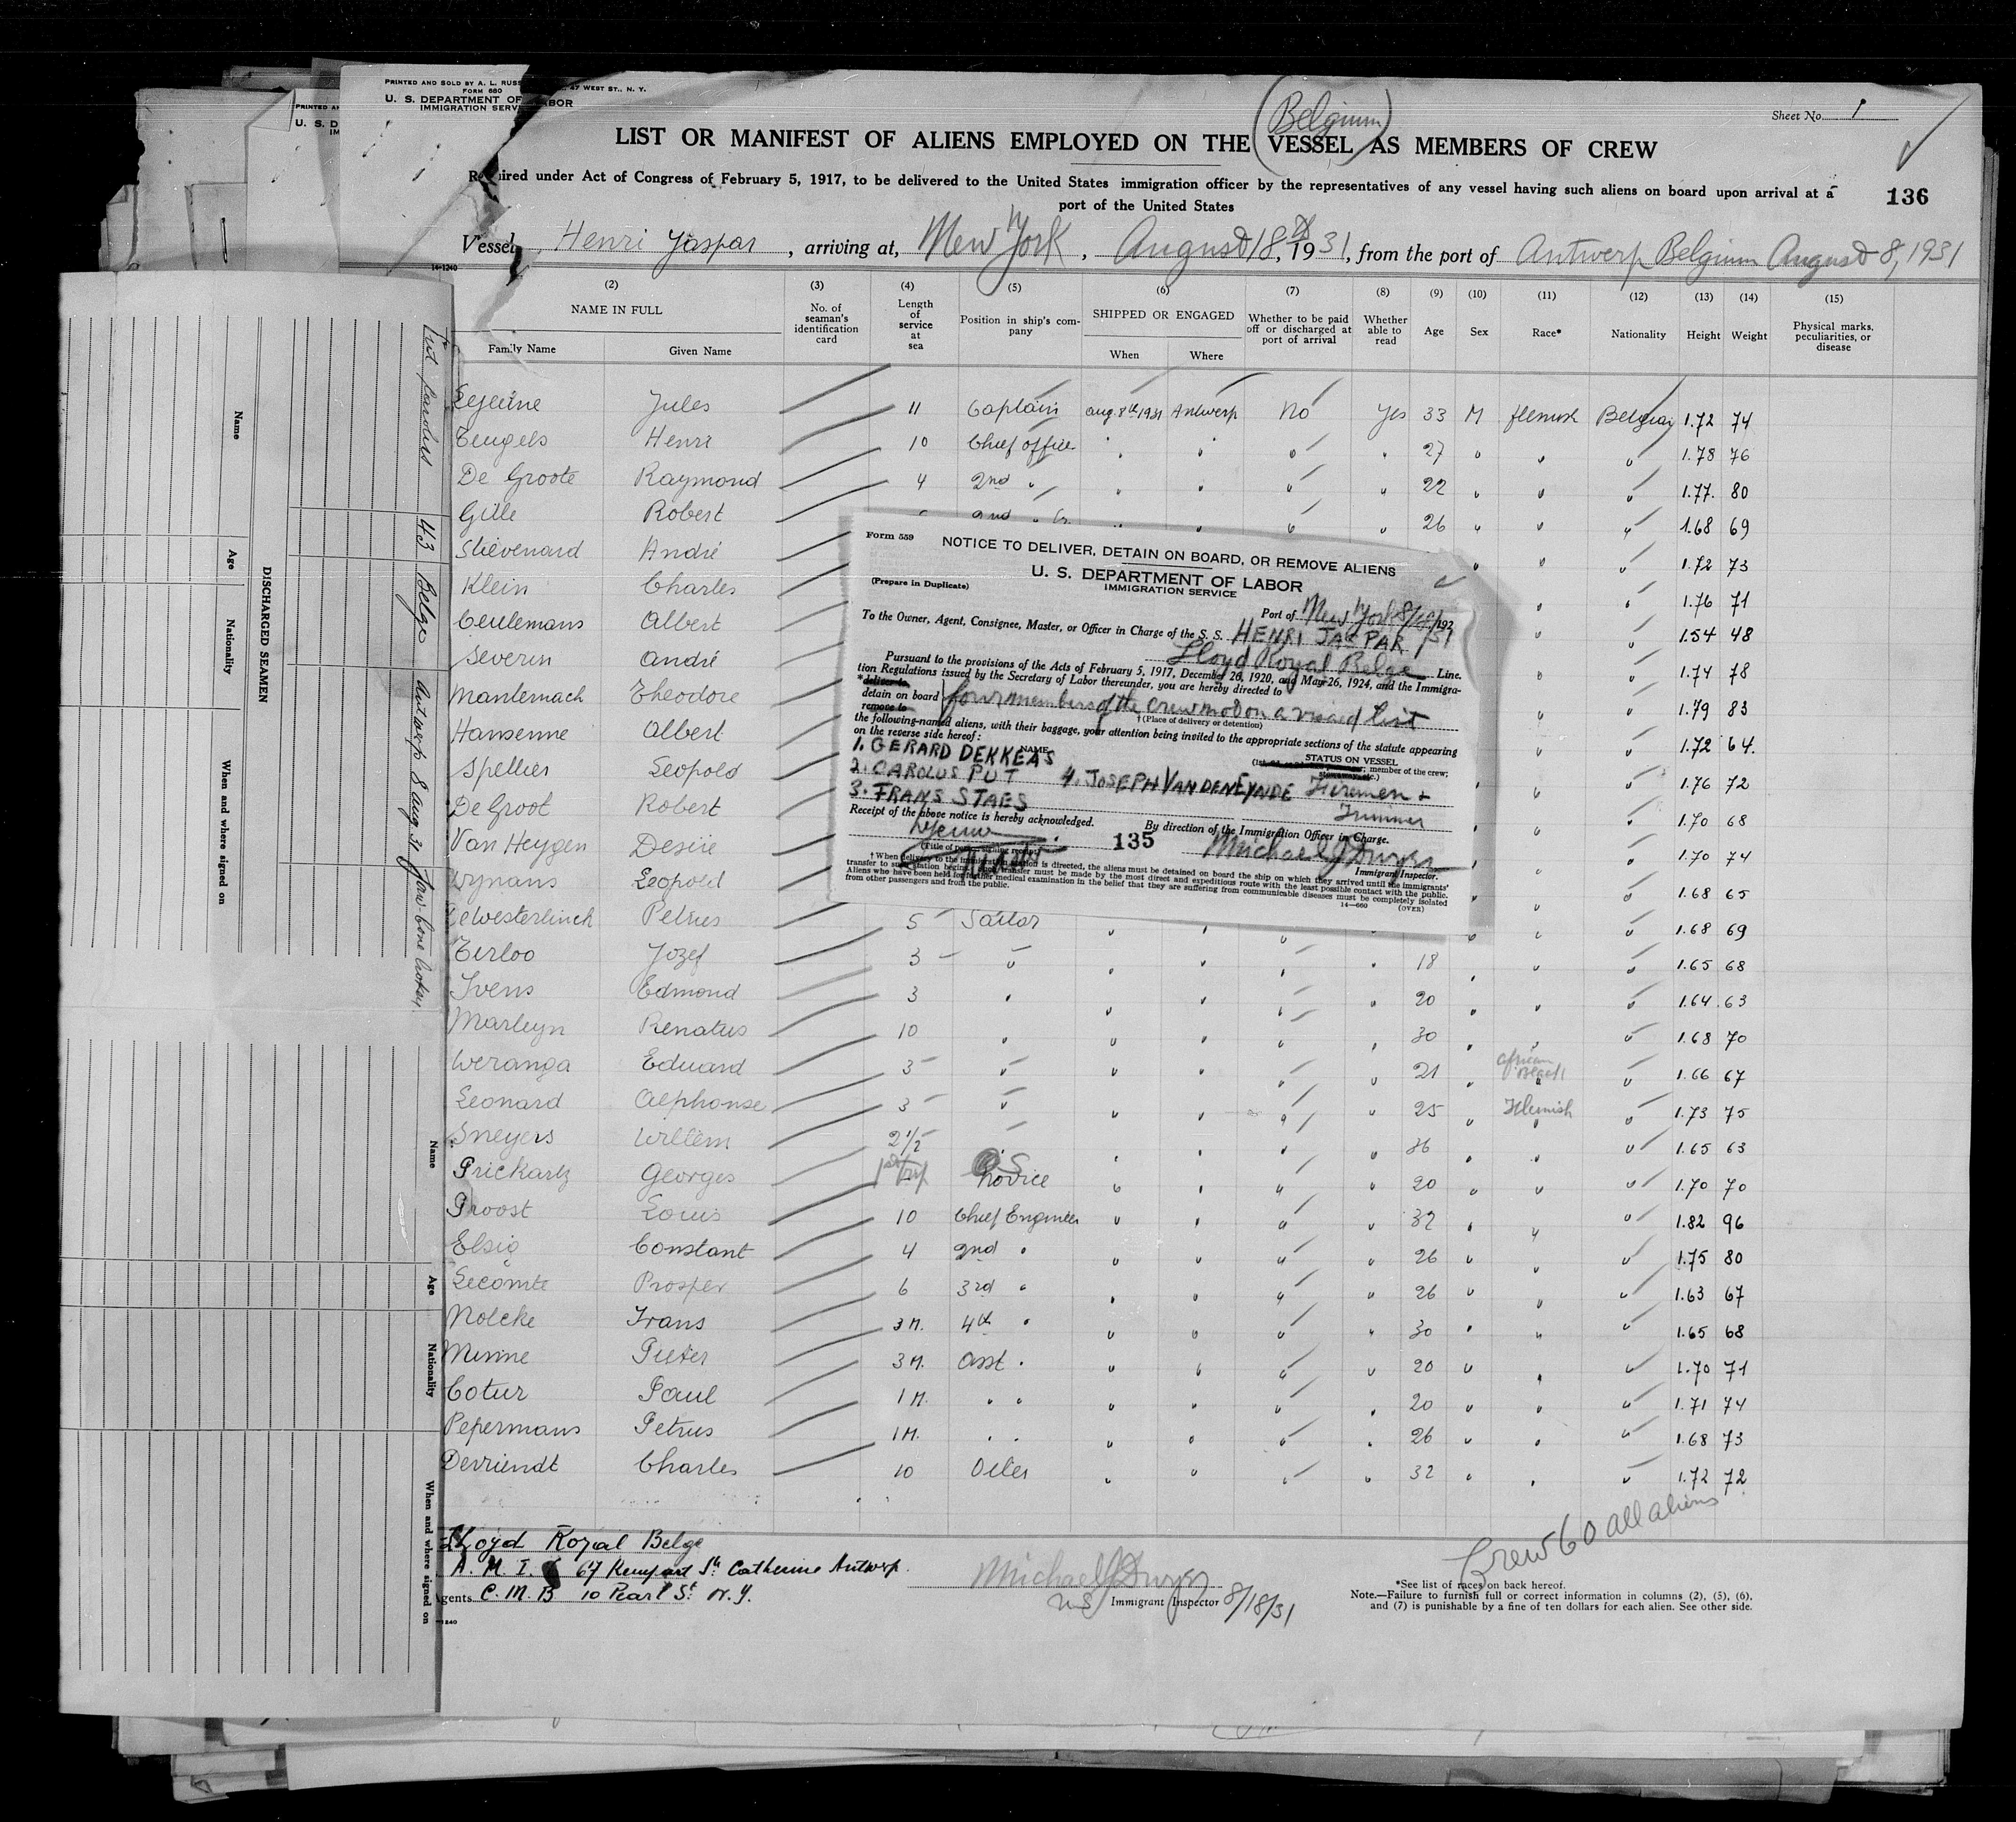 PRINTED AND SOLD BY A. L. RUSS 47 WEST ST., N. Y.
FORM 680
U. S. DEPARTMENT OF LABOR
IMMIGRATION SERV
Sheet No. 1
(Belgium)
LIST OR MANIFEST OF ALIENS EMPLOYED ON THE VESSEL AS MEMBERS OF CREW
Required under Act of Congress of February 5, 1917, to be delivered to the United States immigration officer by the representatives of any vessel having such aliens on board upon arrival at a
port of the United States
136
Vessel Henri Jaspar, arriving at, New York, August 18th, 1931, from the port of Antwerp Belgium August 8, 1931
14-1240
(2) (3) (4) (5) (6) (7) (8) (9) (10) (11) (12) (13) (14) (15)
NAME IN FULL
Family Name Given Name
No. of seaman's identification card
Length of service at sea
Position in ship's company
SHIPPED OR ENGAGED
When Where
Whether to be paid off or discharged at port of arrival
Whether able to read
Age Sex Race* Nationality Height Weight
Physical marks, peculiarities, or disease
Lejeune Jules 11 Captain aug. 8th 1931 Antwerp No Yes 33 M flemish Belgian 1.72 74
Teugels Henri 10 Chief officer 27 1.78 76
De Groote Raymond 4 2nd " 22 1.77 80
Gille Robert 2nd " 26 1.68 69
Stievenard André 1.72 73
Klein Charles 1.76 71
Ceulemans Albert 1.54 48
Severin André 1.74 78
Mantemach Theodore 1.79 83
Hansenne Albert 1.72 64.
Spellier Leopold 1.76 72
De Groot Robert 1.70 68
Van Heygen Desiré 1.70 74
Wynans Leopold 1.68 65
Dewesterlinck Petrus 5 Sailor 1.68 69
Terloo Jozef 3 " 18 1.65 68
Ivens Edmond 3 " 20 1.64 63
Marleyn Renatus 10 " 30 1.68 70
Weranga Eduard 3 " 21 African Black 1.66 67
Leonard Alphonse 3 " 25 Flemish 1.73 75
Sneyers Willem 2 1/2 " 36 1.65 63
Prickartz Georges 1st trip O.S. novice 20 1.70 70
Proost Louis 10 Chief Engineer 32 1.82 96
Elsig Constant 4 2nd " 26 1.75 80
Lecomte Prosper 6 3rd " 26 1.63 67
Nolcke Frans 3 M. 4th " 30 1.65 68
Minne Pieter 3 M. Asst. " 20 1.70 71
Cotur Paul 1 M. " " 20 1.71 74
Pepermans Petrus 1 M. " " 26 1.68 73
Devriendt Charles 10 Oiler 32 1.72 72
Form 559
NOTICE TO DELIVER, DETAIN ON BOARD, OR REMOVE ALIENS
U. S. DEPARTMENT OF LABOR
IMMIGRATION SERVICE
(Prepare in Duplicate)
Port of New York 8/18/1931
To the Owner, Agent, Consignee, Master, or Officer in Charge of the S. S. HENRI JASPAR
Lloyd Royal Belge Line.
Pursuant to the provisions of the Acts of February 5, 1917, December 26, 1920, and May 26, 1924, and the Immigra-
tion Regulations issued by the Secretary of Labor thereunder, you are hereby directed to
*deliver to
detain on board four members of the crew not on a visaed list
remove to
† (Place of delivery or detention)
the following-named aliens, with their baggage, your attention being invited to the appropriate sections of the statute appearing
on the reverse side hereof:
NAME STATUS ON VESSEL
member of the crew;
1. GERARD DEKKEAS
2. CAROLUS PUT 4. JOSEPH VAN DEN EYNDE Firemen +
3. FRANS STAES Trimmer
Receipt of the above notice is hereby acknowledged.
By direction of the Immigration Officer in Charge.
Lejeune 135 Michael J Dwyer
(Title of person signing receipt)
Immigrant Inspector.
† When delivery to the immigration station is directed, the aliens must be detained on board the ship on which they arrived until the immigrants'
transfer to such station begins. Such transfer must be made by the most direct and expeditious route with the least possible contact with the public.
Aliens who have been held for further medical examination in the belief that they are suffering from communicable diseases must be completely isolated
from other passengers and from the public.
14—660 (OVER)
Lloyd Royal Belge
A. M. I. 67 Rempart Ste Catherine Antwerp.
Agents C. M. B 10 Pearl St. N. Y.
Michael J Dwyer
U.S. Immigrant Inspector 8/18/31
Crew 60 all aliens
*See list of races on back hereof.
Note.—Failure to furnish full or correct information in columns (2), (5), (6),
and (7) is punishable by a fine of ten dollars for each alien. See other side.
DISCHARGED SEAMEN
Name Age Nationality When and where signed on
Put Carolus 43 Belge Antwerp 8 aug 31 Jaw-bone broken
Name Age Nationality When and where signed on